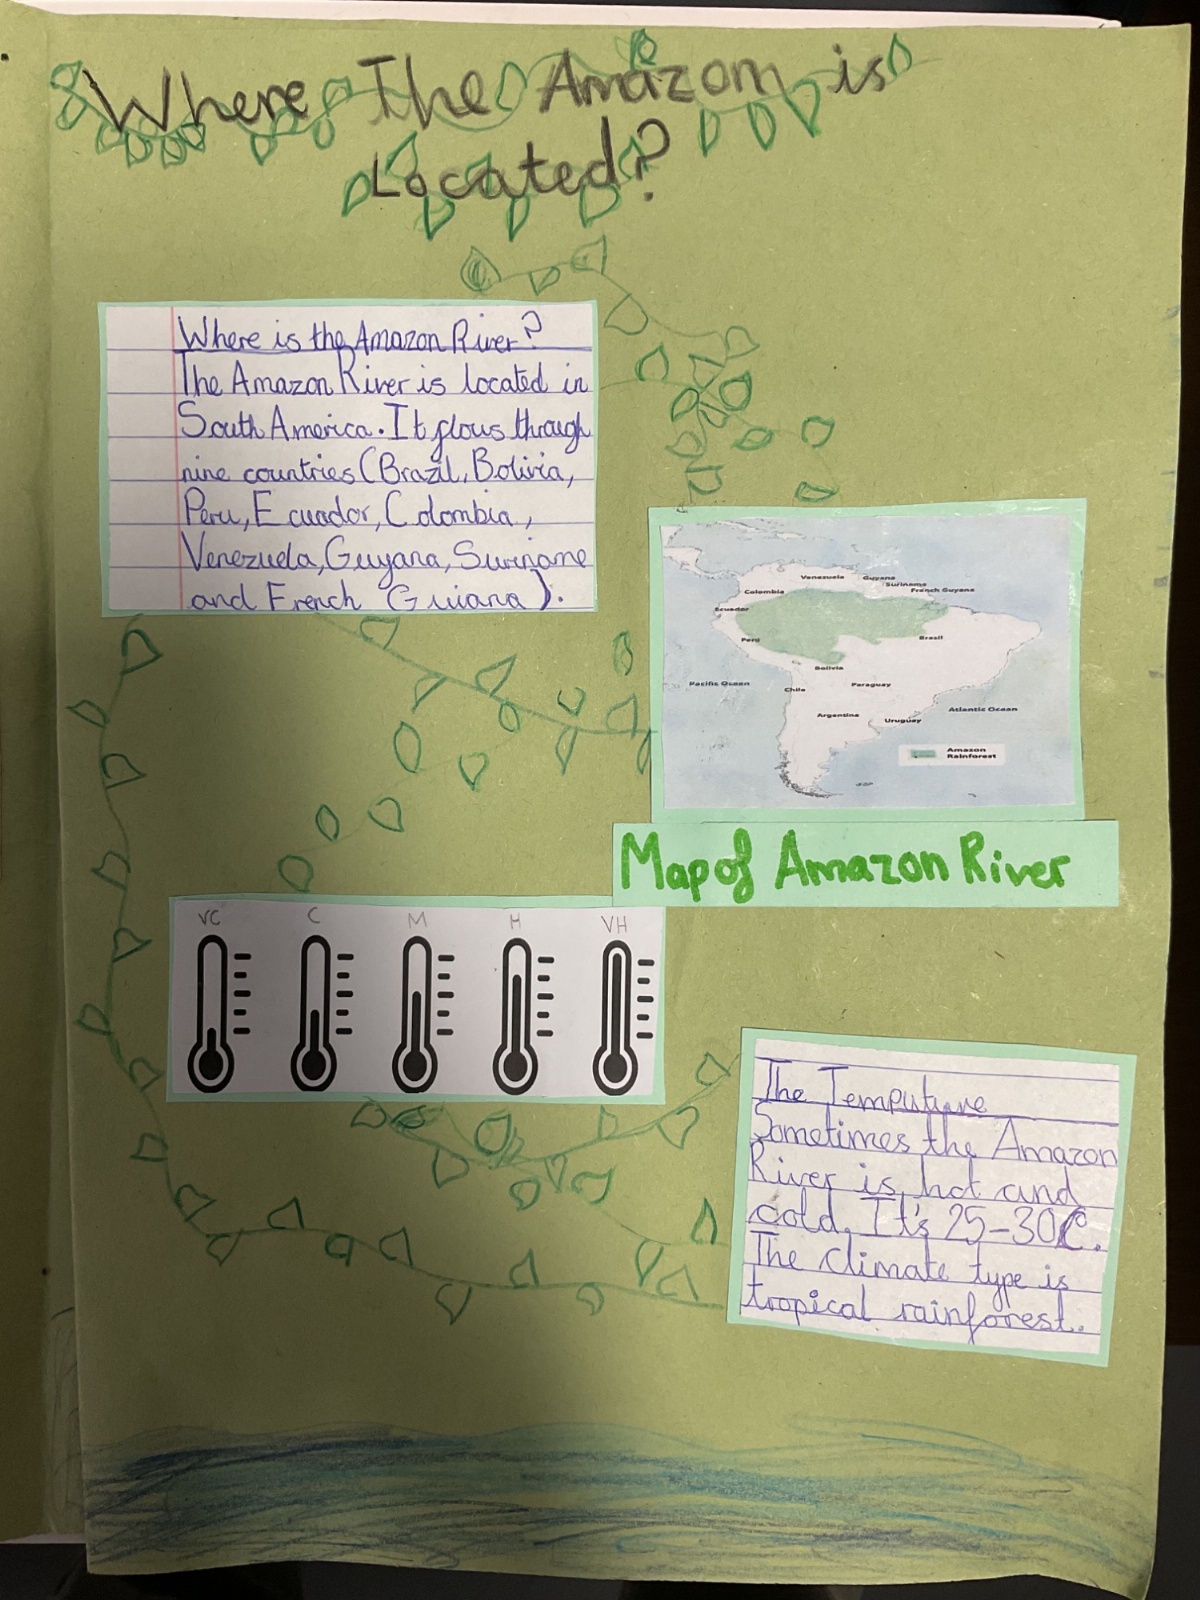 Where The Amazon is
Located?
Where is the Amazon River?
The Amazon River is located in
South America. It flows through
nine countries (Brazil, Bolivia,
Peru, Ecuador, Colombia,
Venezuela, Guyana, Suriname
and French Guiana).
Venezuela
Guyana
Suriname
French Guyana
Colombia
Ecuador
Peru
Brasil
Bolivia
Pacific Ocean
Chile
Paraguay
Atlantic Ocean
Argentina
Uruguay
Amazon
Rainforest
Map of Amazon River
VC C M H VH
The Temputure
Sometimes the Amazon
River is hot and
cold. It's 25-30C.
The climate type is
tropical rainforest.